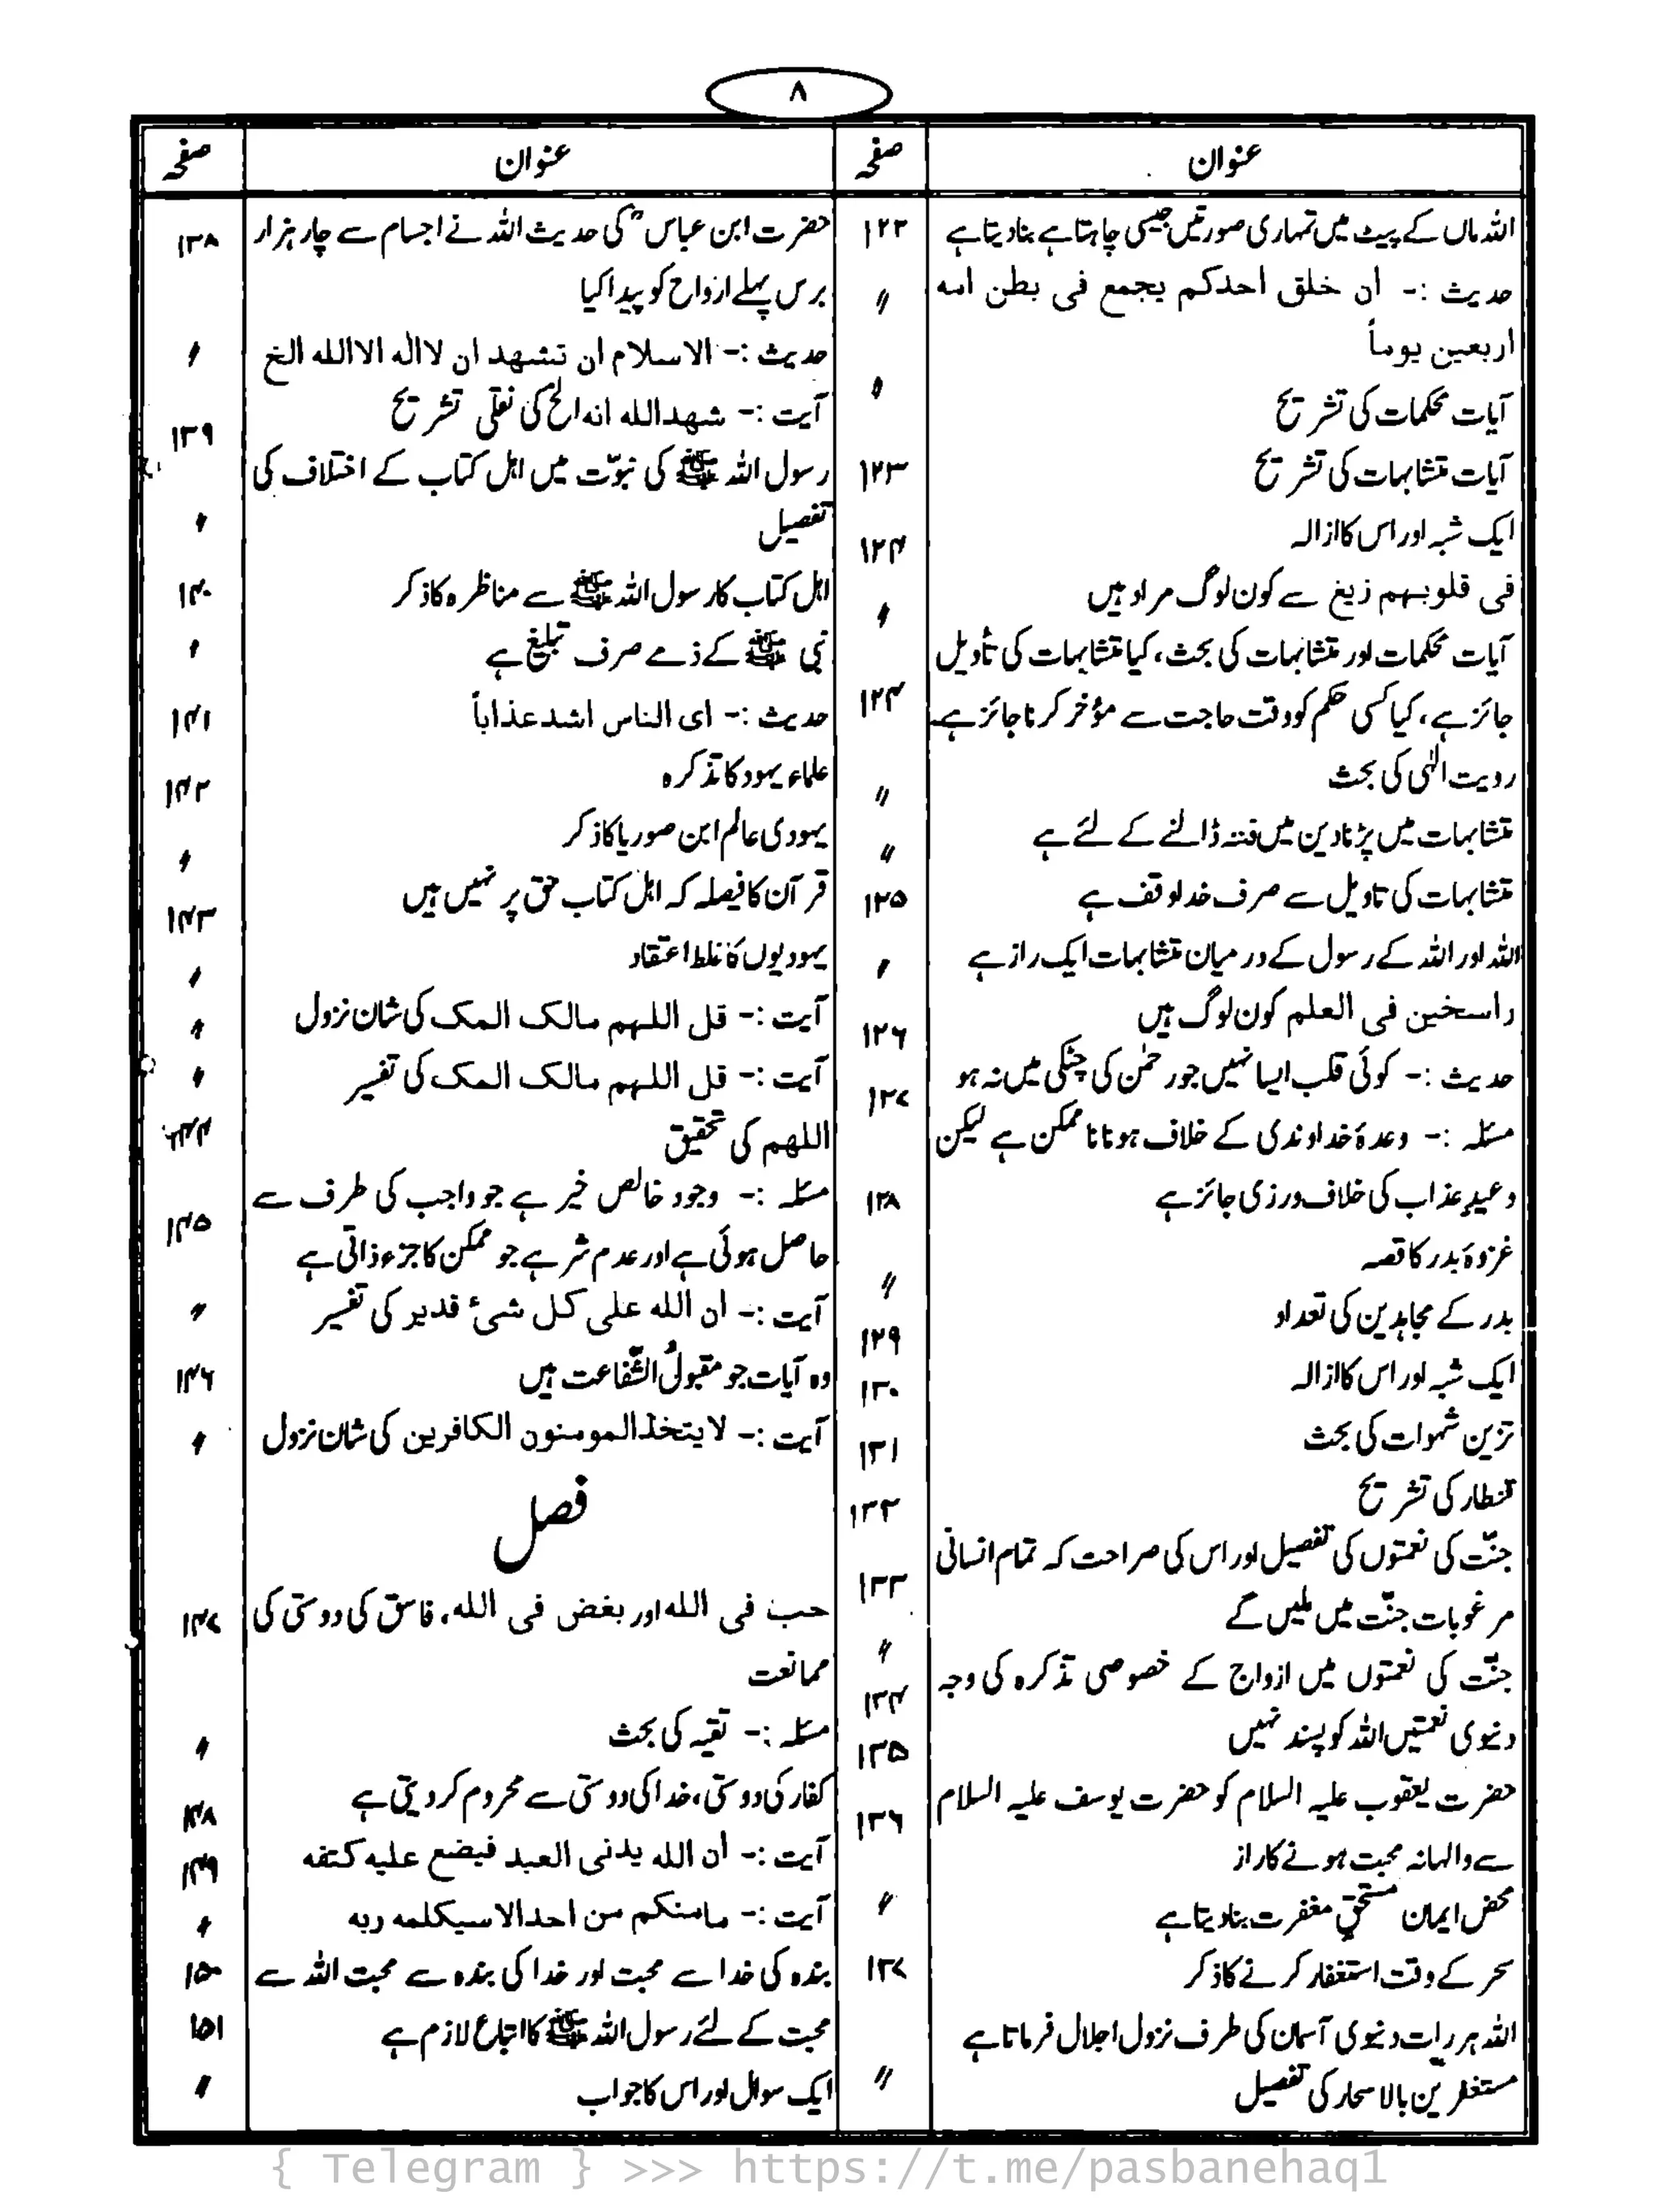 ۸
عنوان
صفحہ
عنوان
صفحہ
اللہ ماں کے پیٹ میں تمہاری صورتیں جیسی چاہتا ہے بنادیتا ہے ۱۲۲
حدیث :- ان خلق احدکم یجمع فی بطن امه 〃
اربعین یوماً
آیات محکمات کی تشریح 〃
آیات متشابہات کی تشریح ۱۲۳
ایک شبہ اور اس کا ازالہ ۱۲۴
فی قلوبهم زیغ سے کون لوگ مراد ہیں 〃
آیات محکمات اور متشابہات کی بحث، کیا متشابہات کی تأویل
جائز ہے، کیا کسی حکم کو وقت حاجت سے مؤخر کرنا جائز ہے۔ ۱۲۴
رویت الٰہی کی بحث 〃
متشابہات میں پڑنا دین میں فتنہ ڈالنے کے لئے ہے 〃
متشابہات کی تاویل سے صرف خدا واقف ہے ۱۲۵
اللہ اور اللہ کے رسول کے درمیان متشابہات ایک راز ہے 〃
راسخین فی العلم کون لوگ ہیں ۱۲۶
حدیث :- کوئی قلب ایسا نہیں جو رحمٰن کی چٹکی میں نہ ہو ۱۲۷
مسئلہ :- وعدۂ خداوندی کے خلاف ہونا ناممکن ہے لیکن
وعیدِ عذاب کی خلاف ورزی جائز ہے ۱۲۸
غزوۂ بدر کا قصہ 〃
بدر کے مجاہدین کی تعداد ۱۲۹
ایک شبہ اور اس کا ازالہ ۱۳۰
تزین شہوات کی بحث ۱۳۱
قنطار کی تشریح ۱۳۲
جنّت کی نعمتوں کی تفصیل اور اس کی صراحت کہ تمام انسانی ۱۳۳
مرغوبات جنّت میں ملیں گے
جنّت کی نعمتوں میں ازواج کے خصوصی تذکرہ کی وجہ 〃
۱۳۴
دنیوی نعمتیں اللہ کو پسند نہیں ۱۳۵
حضرت یعقوب علیہ السلام کو حضرت یوسف علیہ السلام ۱۳۶
سے والہانہ محبت ہونے کا راز
محض ایمان مستحقِ مغفرت بنادیتا ہے 〃
سحر کے وقت استغفار کرنے کا ذکر ۱۳۷
اللہ ہر رات دنیوی آسمان کی طرف نزول اجلال فرماتا ہے
مستغفرین بالاسحار کی تفصیل 〃
حضرت ابن عباسؓ کی حدیث اللہ نے اجسام سے چار ہزار ۱۳۸
برس پہلے ارواح کو پیدا کیا
حدیث :- الاسلام ان تشهد ان لااله الاالله الخ 〃
آیت :- شهدالله انه الخ کی نقلی تشریح ۱۳۹
رسول اللہ ﷺ کی نبوّت میں اہل کتاب کے اختلاف کی
تفصیل 〃
اہل کتاب کا رسول اللہ ﷺ سے مناظرہ کا ذکر ۱۴۰
نبی ﷺ کے ذمے صرف تبلیغ ہے 〃
حدیث :- ای الناس اشد عذاباً ۱۴۱
علماء یہود کا تذکرہ ۱۴۲
یہودی عالم ابن صوریا کا ذکر 〃
قرآن کا فیصلہ کہ اہل کتاب حق پر نہیں ہیں ۱۴۳
یہودیوں کا غلط اعتقاد 〃
آیت :- قل اللهم مالک المک کی شان نزول 〃
آیت :- قل اللهم مالک المک کی تفسیر 〃
اللهم کی تحقیق
مسئلہ :- وجود خالص خیر ہے جو واجب کی طرف سے ۱۴۵
حاصل ہوئی ہے اور عدم شر ہے جو ممکن کا جزءِ ذاتی ہے
آیت :- ان الله علی کل شیٔ قدیر کی تفسیر 〃
وہ آیات جو مقبولُ الشّفاعت ہیں ۱۴۶
آیت :- لایتخذالمومنون الکافرین کی شان نزول 〃
فصل
حب فی الله اور بغض فی الله، فاسق کی دوستی کی ۱۴۷
ممانعت
مسئلہ :- تقیہ کی بحث 〃
کفار کی دوستی، خدا کی دوستی سے محروم کردیتی ہے ۱۴۸
آیت :- ان الله یدنی العبد فیضع علیه کتفه ۱۴۹
آیت :- مامنکم من احدالاسیکلمه ربه 〃
بندہ کی خدا سے محبت اور خدا کی بندہ سے محبت اللہ سے ۱۵۰
محبت کے لئے رسول اللہ ﷺ کا اتباع لازم ہے ۱۵۱
ایک سوال اور اس کا جواب 〃
{ Telegram } >>> https://t.me/pasbanehaq1